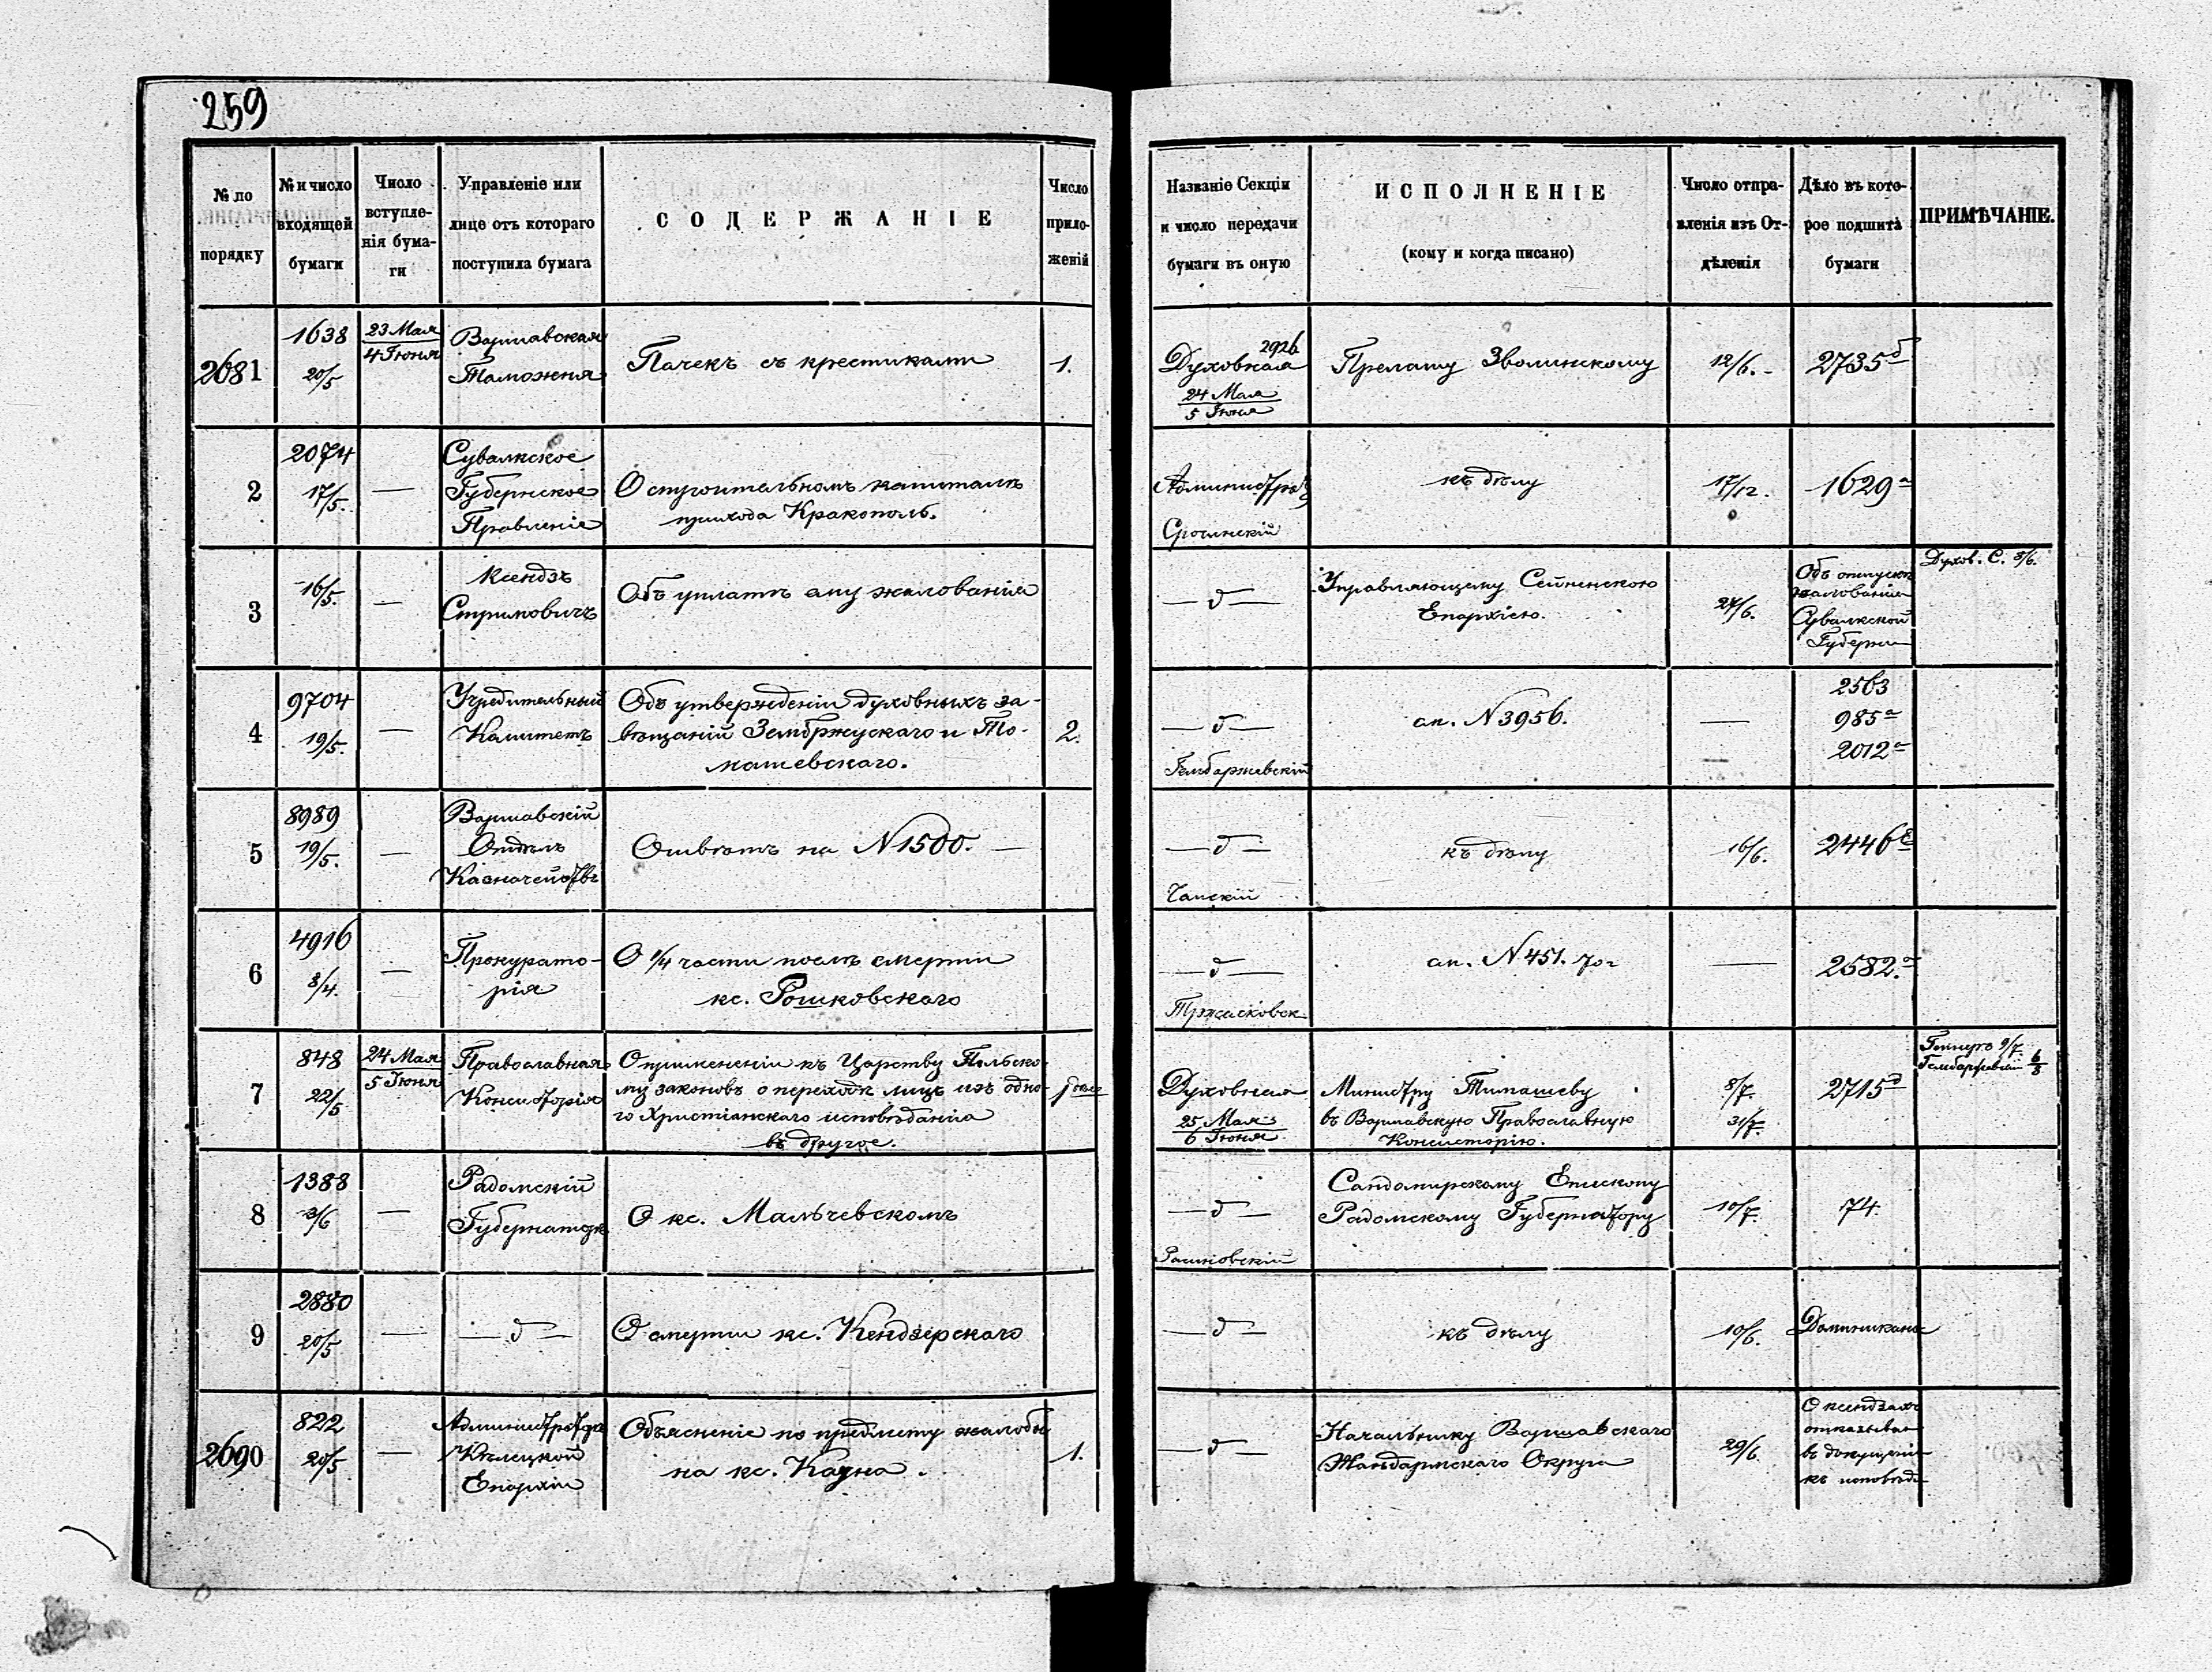 259
№ по порядку
№ и число входящей бумаги
Число вступле-
нія бума-
ги
Управленіе или
лице отъ котораго
поступила бумага
СОДЕРЖАНІЕ
Число
прило-
женій
Названіе Секціи
и число передачи
бумаги въ оную
ИСПОЛНЕНІЕ
(кому и когда писано)
Число отпра-
вленія изъ От-
дѣленія
Дѣло въ кото-
рое подшита
бумаги
ПРИМѢЧАНІЕ.
2681
1638
20/5
23 Мая
4 Іюня
Варшавская
Таможня
Пачекъ съ крестиками
1.
2926
Духовная
24 Мая
5 Іюня
Прелату Зволинскому
12/6.
2735б
2
2074
17/5.
—
Сувалкское
Губернское
Правленіе
О строительномъ капиталѣ
прихода Кракополь.
къ дѣлу
17/12.
1629а
3
16/5.
—
Ксендзъ
Стримовичъ
Объ уплатѣ ему жалованія
— д —
Управляющему Сейненскою
Епархіею.
27/6.
Объ отпускѣ
жалованія
Сувалкской
Губерніи
Духов. С. 3/6.
4
9704
19/5.
—
Учредительный
Комитетъ
Объ утвержденіи духовныхъ за-
вѣщаній Зембржускаго и То-
машевскаго.
2.
— д —
Гембаржевскій
ак. N 3956.
—
2563
985а
2012а
5
8989
19/5.
—
Варшавскій
Отдѣлъ
Казначейства
Отвѣтъ на N 1500. —
— д —
къ дѣлу
16/6.
2446
6
4916
8/4.
—
Прокурато-
рія
О 1/4 части послѣ смерти
кс. Рошковскаго
— д —
ак. N 451. 70г
—
2582.а
7
848
22/5
24 Мая
5 Іюня
Православная
Консисторія
О примѣненіи къ Царству Польско-
му законовъ о переходѣ лицъ изъ одно-
го Христіанскаго исповѣданія
въ другое.
1 дѣло
Духовная
25 Мая
6 Іюня
Министру Тимашеву
въ Варшавскую Православную
Консисторію.
8/7.
31/7.
2715д
Гембаржевскій 6/8
8
1388
3/6
—
Радомскій
Губернаторъ
О кс. Мальчевскомъ
— д —
Сандомирскому Епископу
Радомскому Губернатору
10/7.
74.
9
2880
20/5
—
— д —
О смерти кс. Кендзерскаго
— д —
къ дѣлу
10/6.
Доминикане
2690
822
20/5
—
Администраторъ
Кѣлецкой
Епархіи
Объясненіе по предмету жалобы
на кс. Кауна.
1.
— д —
Начальнику Варшавскаго
Жандармскаго Округа
29/6
О ксендзахъ
отказыва
въ допущеніи
къ исповѣди